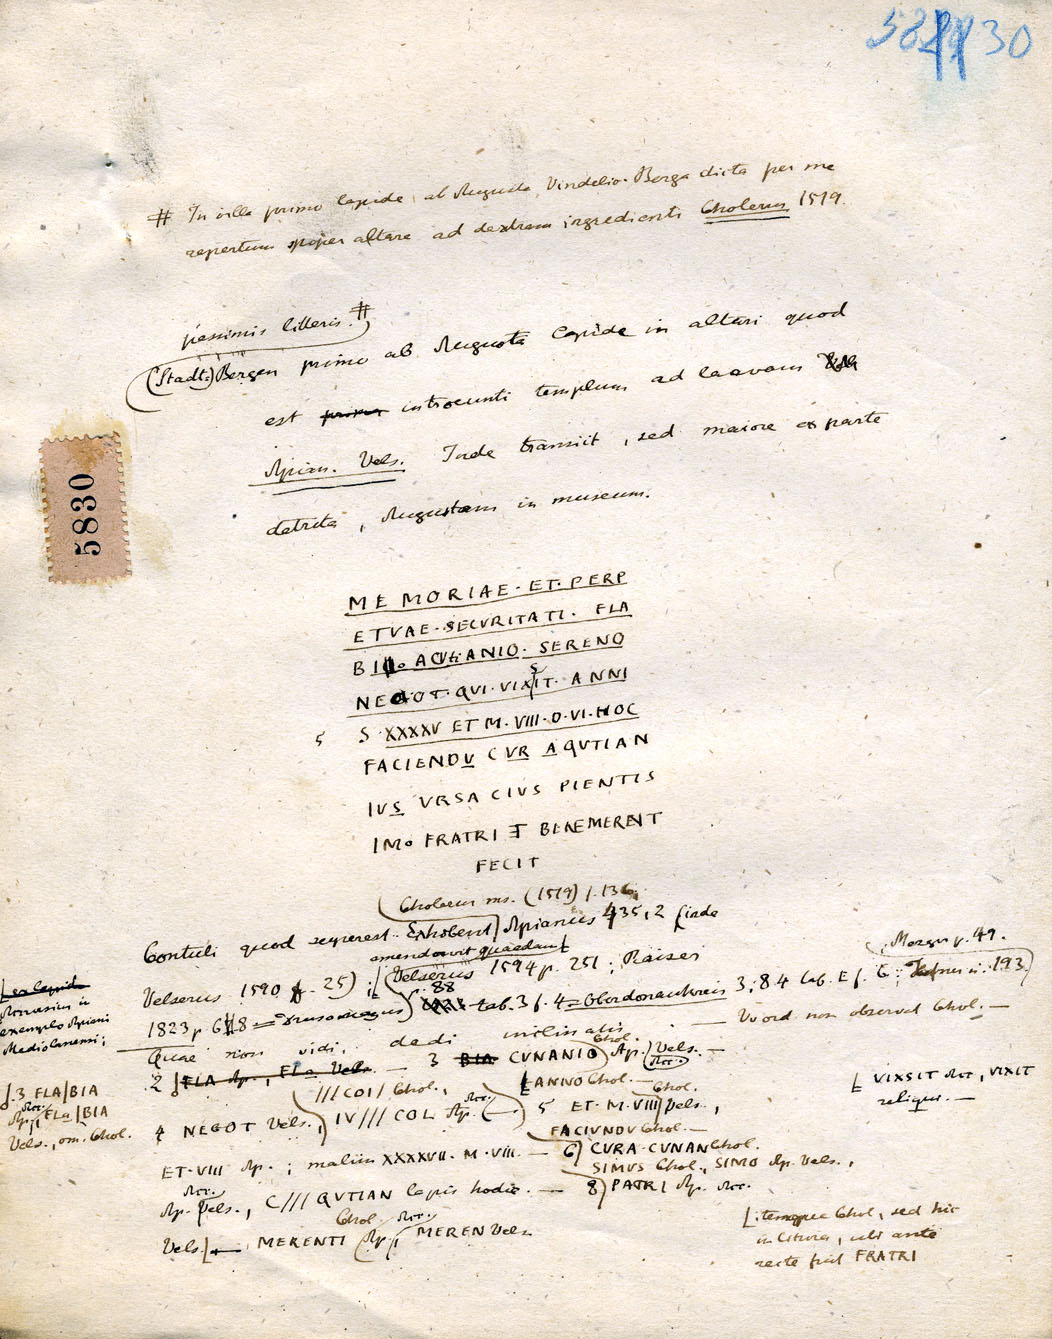 5830
# In villa primo lapide ab Augusta Vindelic. Berga dicta per me
repertum super altare ad dextram ingredienti Cholerus 1519.
pessimis litteris. #
(Stadt-)Bergen primo ab Augusta lapide in altari quod
est introeunti templum ad laevam
Apian. Vels. Inde transiit, sed maiore ex parte
detrita, Augustam in museum.
5830
MEMORIAE·ET·PERP
ETVAE·SECVRITATI·FLA
BIO ACVTIANIO·SERENO
NEGOT·QVI·VIXSIT·ANNI
5 S·XXXXV ET M·VIII·D·VI·HOC
FACIENDV CVR AQVTIAN
IVS VRSACIVS PIENTIS
IMO FRATRI ET BENEMERENT
FECIT
Cholerus ms. (1519) f. 136.
Contuli quod superest. Exhibent Apianus 435, 2 (inde
emendavit quaedam
Velserus 1590 f. 25); Velserus 1594 p. 251; Raiser
1823 p. 68 = Drusomagus p. 88 tab. 3 f. 4 = Oberdonaukreis 3, 84 tab. E f. 6; Hefner n. 193.
Mezger p. 49.
Quae non vidi, dedi inclinatis. — V. ord. non observat Chol. —
Mediolanensi;
2 FLA Ap., FLa Vels. — 3 BIA CVNANIO Chol. Ap. Vels. —
3 FLA|BIA
Ap., FLa|BIA
Vels., om. Chol.
///COI/ Chol., ANNO Chol. —
VIXSIT, VIXIT
reliqui. —
4 NEGOT Vels., IV///COL Ap. — 5 ET·M·VIII Chol. Vels.,
FACIVNDV Chol. —
ET·VIII Ap.; malim XXXXVII·M·VIII. — 6 CVRA·CVNAN Chol.
SIMVS Chol., SIMO Ap. Vels.,
Ap. Vels., C///QVTIAN lapis hodie. — 8 PATRI Ap.
Vels. — MERENTI Chol. Ap., MEREN Vels.
itemque Chol., sed hic
in litura, ubi ante
recte fuit FRATRI